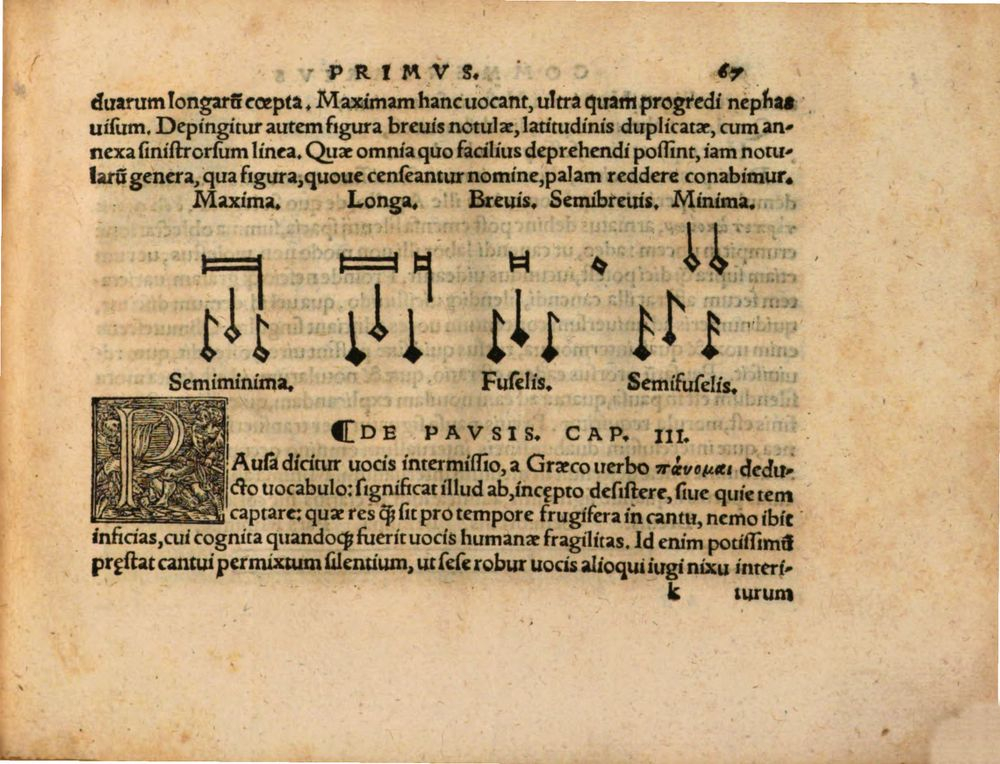 PRIMVS. 67
duarum longarũ cœpta. Maximam hanc uocant, ultra quam progredi nephas
uisum. Depingitur autem figura breuis notulæ, latitudinis duplicatæ, cum an-
nexa sinistrorsum linea. Quæ omnia quo facilius deprehendi possint, iam notu-
larũ genera, qua figura, quoue censeantur nomine, palam reddere conabimur.
Maxima. Longa. Breuis. Semibreuis. Minima.
Semiminima. Fuselis. Semifuselis.
DE PAVSIS. CAP. III.
PAusa dicitur uocis intermissio, a Græco uerbo πάνομαι dedu-
cto uocabulo: significat illud ab, incępto desistere, siue quie tem
captare: quæ res ꝙ sit pro tempore frugifera in cantu, nemo ibit
inficias, cui cognita quandoꝗ fuerit uocis humanæ fragilitas. Id enim potissimũ
pręstat cantui permixtum silentium, ut sese robur uocis alioqui iugi nixu interi-
k turum